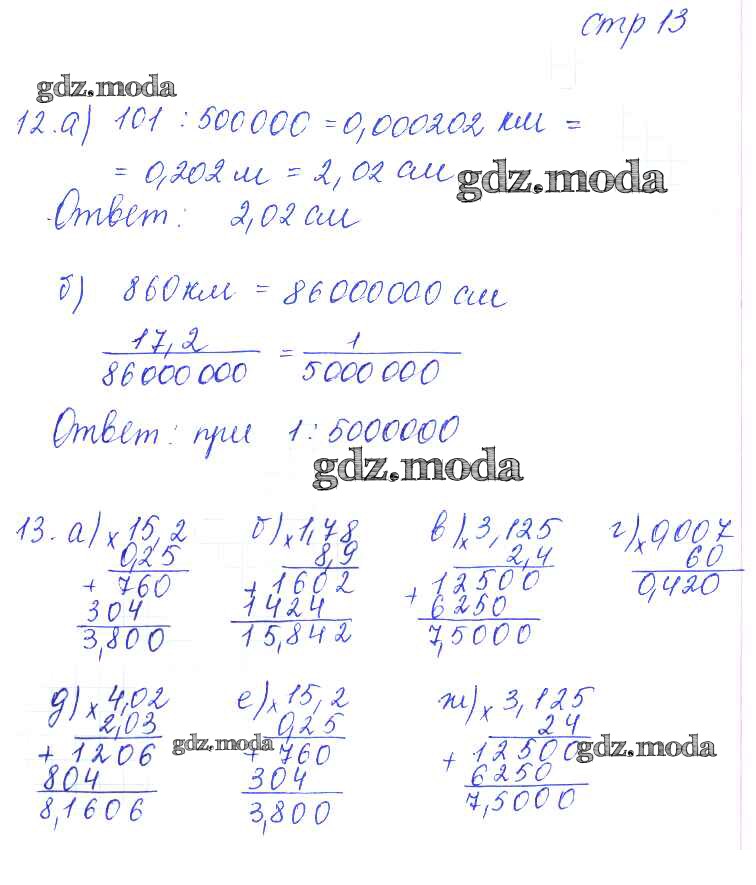 стр 13
gdz.moda
12. а) 101 : 500000 = 0,000202 км =
= 0,202 м = 2,02 см
gdz.moda
Ответ: 2,02 см
б) 860 км = 86000000 см
17,2 / 86000000 = 1 / 5000000
Ответ: при 1 : 5000000
gdz.moda
13. а) × 15,2
0,25
+ 760
304
3,800
б) × 1,78
8,9
+ 1602
1424
15,842
в) × 3,125
2,4
+ 12500
6250
7,5000
г) × 0,007
60
0,420
д) × 4,02
2,03
+ 1206
804
8,1606
gdz.moda
е) × 15,2
0,25
+ 760
304
3,800
ж) × 3,125
24
+ 12500
6250
7,5000
gdz.moda